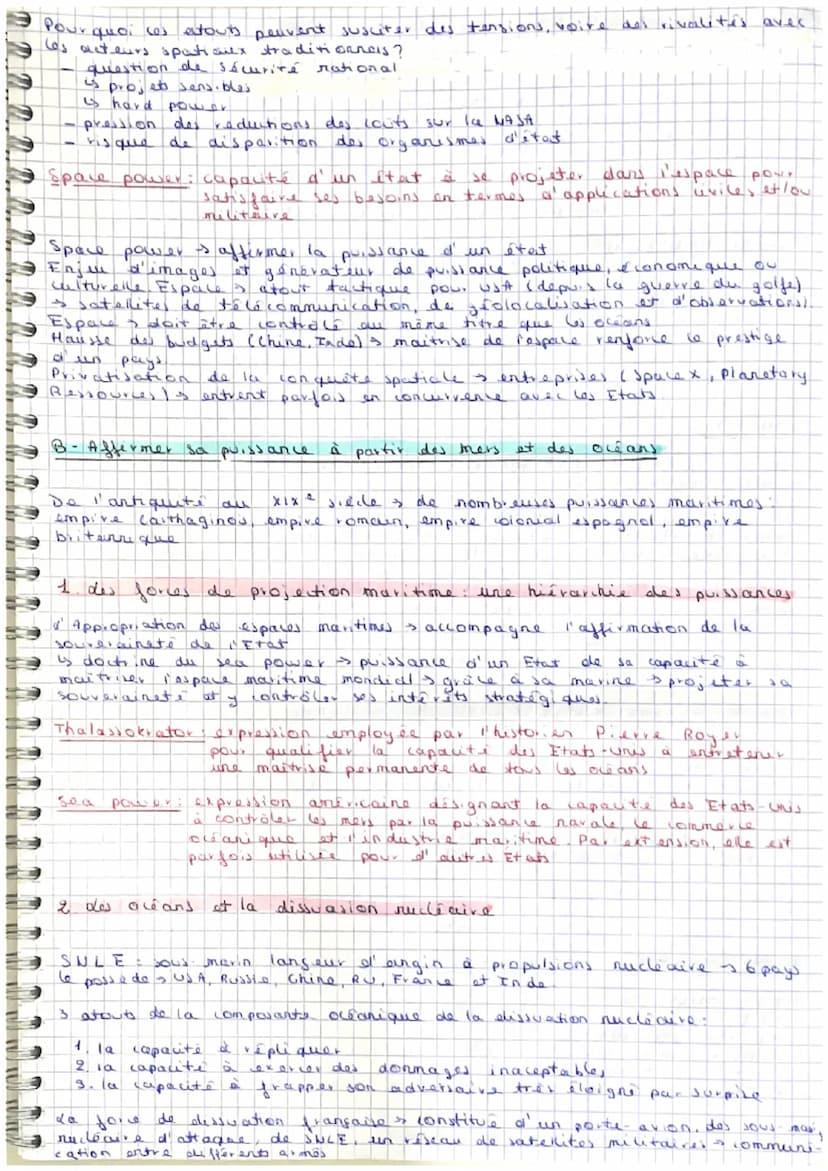 Pourquoi ces atouts peuvent susciter des tensions, voire des rivalités avec
les acteurs spatiaux traditionnels ?
- question de sécurité national
↳ projets sensibles
↳ hard power
- pression des réductions des coûts sur la NASA
- risque de disparition des organismes d'état
Space power : capacité d'un État à se projeter dans l'espace pour
satisfaire ses besoins en termes d'applications civiles et/ou
militaire
Space power → affirmer la puissance d'un état
Enjeu d'images et générateur de puissance politique, économique ou
culturelle. Espace → atout tactique pour USA (depuis la guerre du golfe)
→ satellites de télécommunication, de géolocalisation et d'observations).
Espace → doit être contrôlé au même titre que les océans
Hausse des budgets (Chine, Inde) → maîtrise de l'espace renforce le prestige
d'un pays.
Privatisation de la conquête spatiale → entreprises (Space X, Planetary
Ressources) → entrent parfois en concurrence avec les Etats.
B - Affirmer sa puissance à partir des mers et des océans
De l'antiquité au XIXe siècle → de nombreuses puissances maritimes :
empire carthaginois, empire romain, empire colonial espagnol, empire
britannique
1. des forces de projection maritime : une hiérarchie des puissances
l'Appropriation des espaces maritimes → accompagne l'affirmation de la
souveraineté de l'Etat
↳ doctrine du sea power → puissance d'un Etat de sa capacité à
maîtriser l'espace maritime mondial → grâce à sa marine → projeter sa
souveraineté et y contrôler ses intérêts stratégiques.
Thalassokrator : expression employée par l'historien Pierre Royer
pour qualifier la capacité des Etats-unis à entretenir
une maîtrise permanente de tous les océans
Sea power : expression américaine désignant la capacité des Etats-Unis
à contrôler les mers par la puissance navale, le commerce
océanique et l'industrie maritime. Par extension, elle est
parfois utilisée pour d'autres Etats
2. des océans et la dissuasion nucléaire
SNLE : sous-marin lanseur d'engin à propulsions nucléaire → 6 pays
le possède → USA, Russie, Chine, RU, France et Inde
3 atouts de la composante océanique de la dissuation nucléaire :
1. la capacité à répliquer
2. la capacité à exercer des dommages inaceptables
3. la capacité à frapper son adversaire très éloigné par surprise
La force de dissuation française → constitué d'un porte-avion, des sous-marins
nucléaire d'attaque, de SNLE, un réseau de satellites militaires → communi-
cation entre différents armés